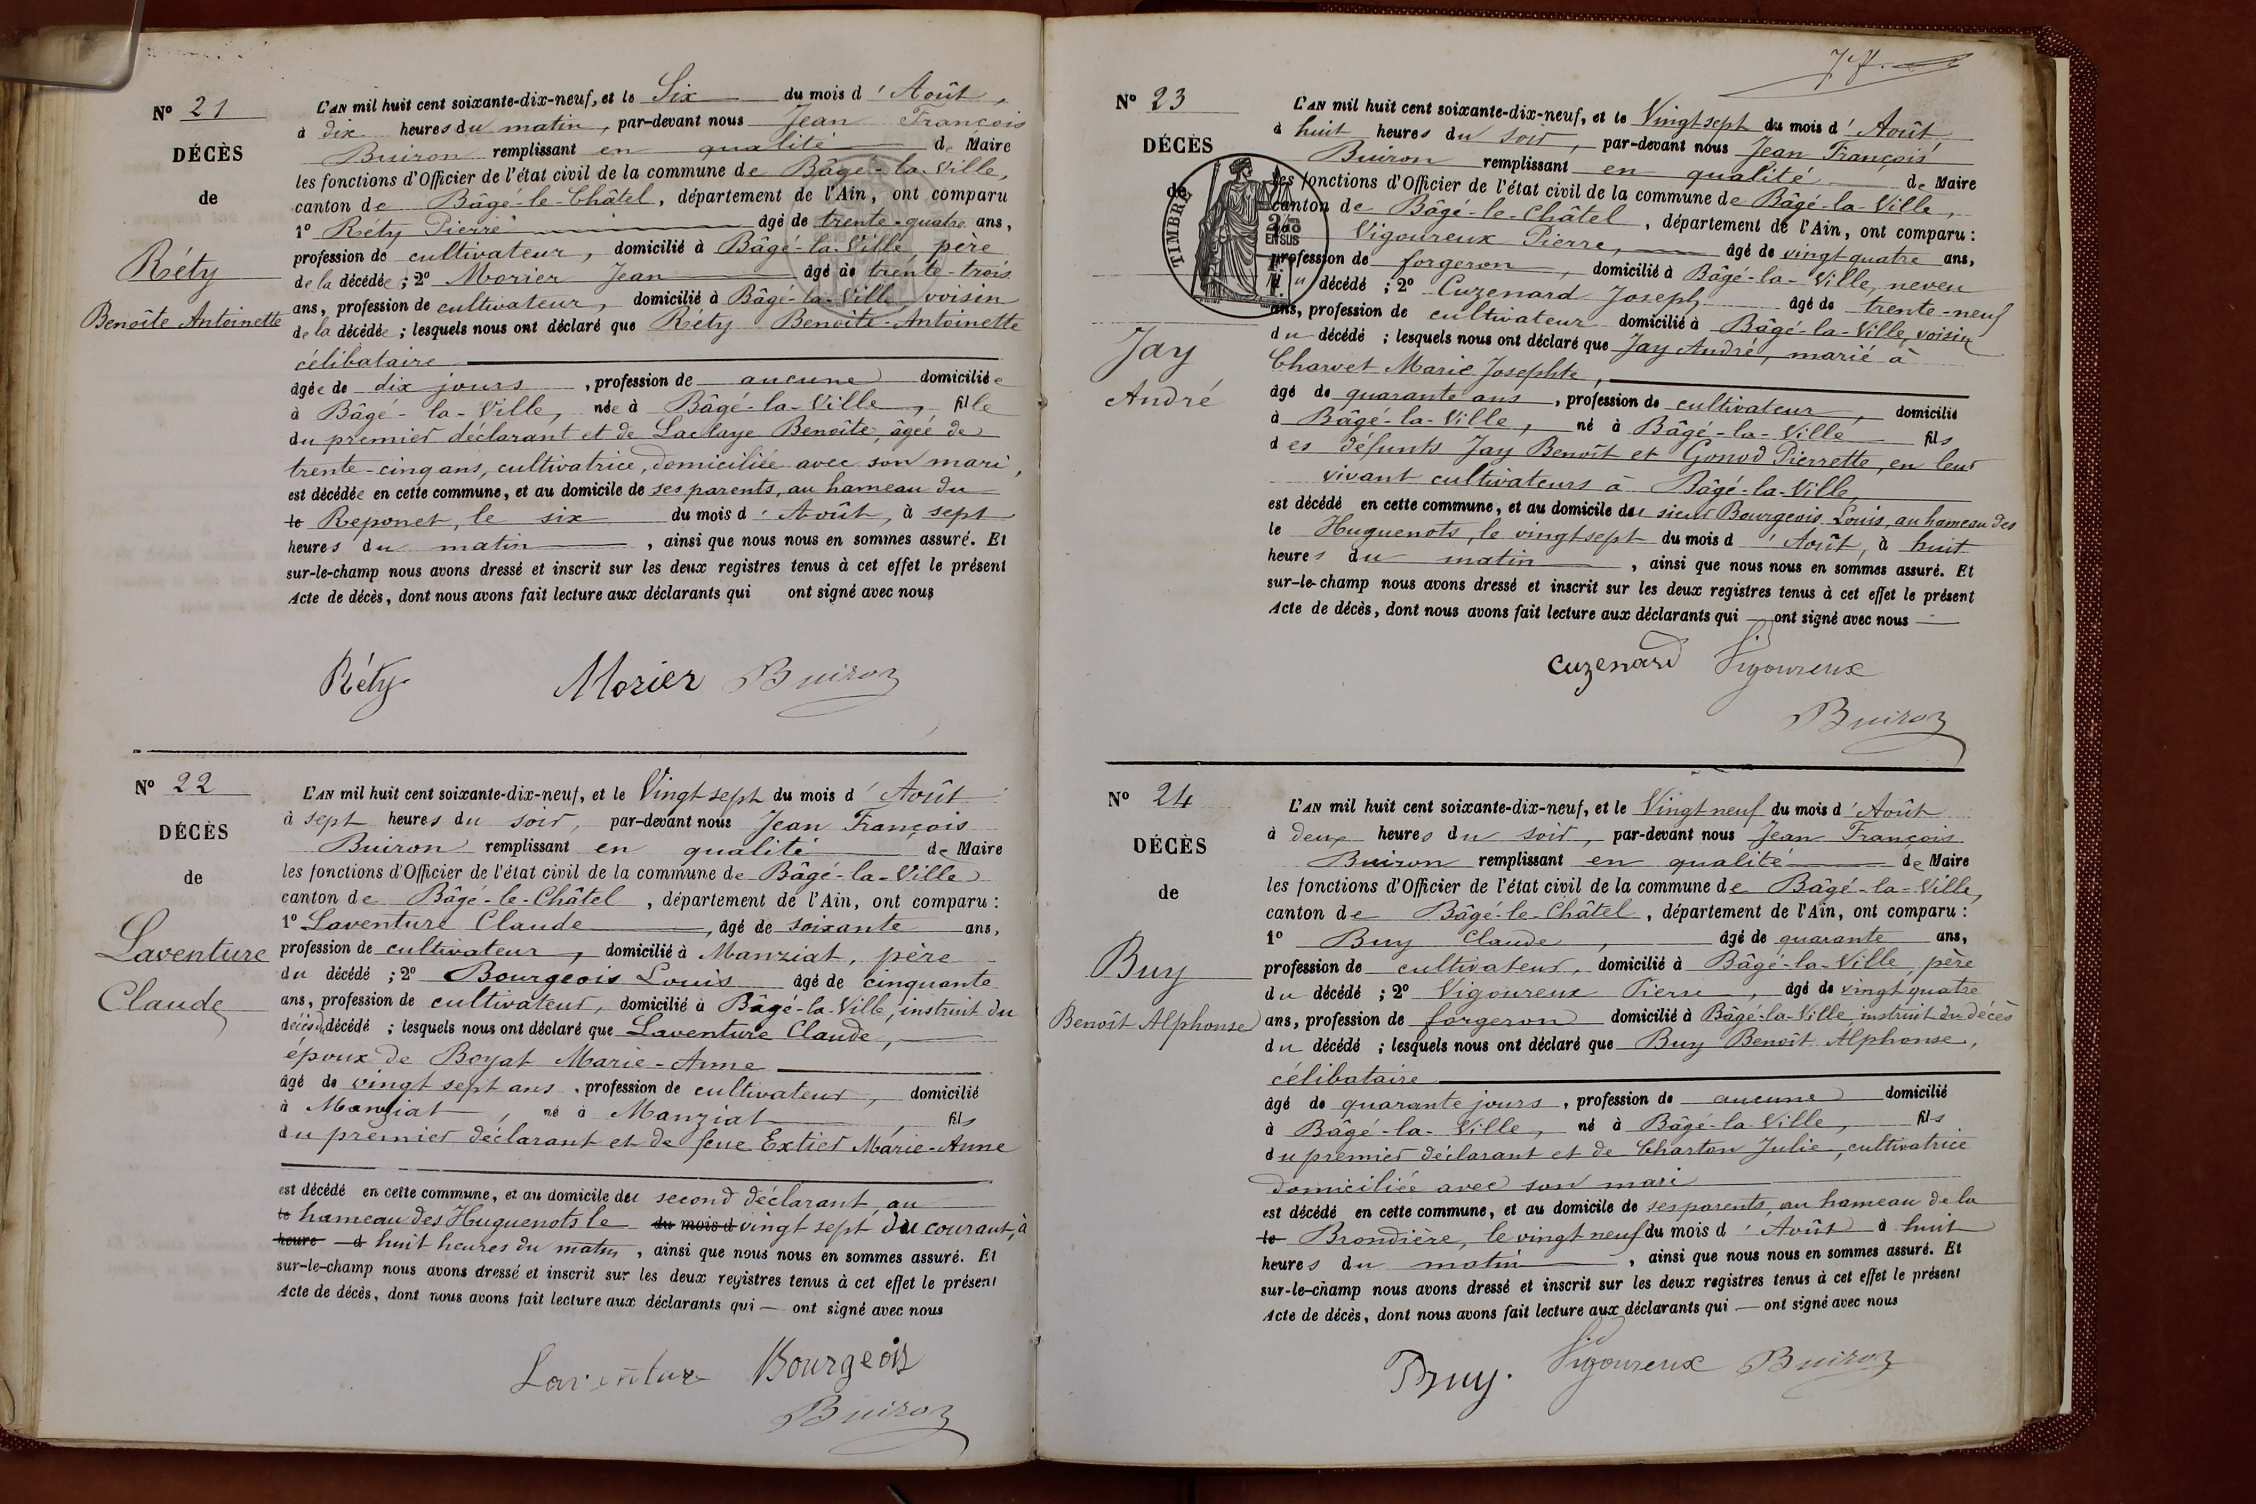 N° 21
DÉCÈS
de
Réty
Benoîte Antoinette
L'AN mil huit cent soixante-dix-neuf, et le Six du mois d'Août,
à dix heures du matin, par-devant nous Jean François
Buiron remplissant en qualité de Maire
les fonctions d'Officier de l'état civil de la commune de Bâgé-la-Ville,
canton de Bâgé-le-Châtel, département de l'Ain, ont comparu
1° Réty Pierre âgé de trente-quatre ans,
profession de cultivateur, domicilié à Bâgé-la-Ville, père
de la décédée ; 2° Morier Jean âgé de trente-trois
ans, profession de cultivateur, domicilié à Bâgé-la-Ville, voisin
de la décédée ; lesquels nous ont déclaré que Réty Benoîte-Antoinette
célibataire
âgée de dix jours, profession de aucune domiciliée
à Bâgé-la-Ville, née à Bâgé-la-Ville, fille
du premier déclarant et de Laclaye Benoîte, âgée de
trente-cinq ans, cultivatrice, domiciliée avec son mari,
est décédée en cette commune, et au domicile de ses parents, au hameau du
le Reponet, le six du mois d'Août, à sept
heures du matin, ainsi que nous nous en sommes assuré. Et
sur-le-champ nous avons dressé et inscrit sur les deux registres tenus à cet effet le présent
Acte de décès, dont nous avons fait lecture aux déclarants qui ont signé avec nous
Réty Morier Buiron
N° 22
DÉCÈS
de
Laventure
Claude
L'AN mil huit cent soixante-dix-neuf, et le Vingt sept du mois d'Août
à sept heures du soir, par-devant nous Jean François
Buiron remplissant en qualité de Maire
les fonctions d'Officier de l'état civil de la commune de Bâgé-la-Ville
canton de Bâgé-le-Châtel, département de l'Ain, ont comparu :
1° Laventure Claude, âgé de soixante ans,
profession de cultivateur, domicilié à Manziat, père
du décédé ; 2° Bourgeois Louis âgé de cinquante
ans, profession de cultivateur, domicilié à Bâgé-la-Ville, instruit du
décès du décédé ; lesquels nous ont déclaré que Laventure Claude,
époux de Boyat Marie-Anne
âgé de vingt sept ans, profession de cultivateur, domicilié
à Manziat, né à Manziat, fils
du premier déclarant et de feue Extier Marie-Anne
est décédé en cette commune, et au domicile du second déclarant, au
le hameau des Huguenots le du mois d vingt sept du courant, à
heure d huit heures du matin, ainsi que nous nous en sommes assuré. Et
sur-le-champ nous avons dressé et inscrit sur les deux registres tenus à cet effet le présent
Acte de décès, dont nous avons fait lecture aux déclarants qui — ont signé avec nous
Laventure Bourgeois
Buiron
N° 23
DÉCÈS
de
TIMBRE
EN SUS
Jay
André
L'AN mil huit cent soixante-dix-neuf, et le Vingt sept du mois d'Août,
à huit heures du soir, par-devant nous Jean François
Buiron remplissant en qualité de Maire
les fonctions d'Officier de l'état civil de la commune de Bâgé-la-Ville,
canton de Bâgé-le-Châtel, département de l'Ain, ont comparu :
Vigoureux Pierre, âgé de vingt quatre ans,
profession de forgeron, domicilié à Bâgé-la-Ville, neveu
du décédé ; 2° Cuzenard Joseph âgé de trente-neuf
ans, profession de cultivateur domicilié à Bâgé-la-Ville, voisin
du décédé ; lesquels nous ont déclaré que Jay André, marié à
Charvet Marie Josephte,
âgé de quarante ans, profession de cultivateur, domicilié
à Bâgé-la-Ville, né à Bâgé-la-Ville fils
des défunts Jay Benoît et Gonod Pierrette, en leur
vivant cultivateurs à Bâgé-la-Ville,
est décédé en cette commune, et au domicile du sieur Bourgeois Louis, au hameau des
le Huguenots, le vingt sept du mois d'Août, à huit
heures du matin, ainsi que nous nous en sommes assuré. Et
sur-le-champ nous avons dressé et inscrit sur les deux registres tenus à cet effet le présent
Acte de décès, dont nous avons fait lecture aux déclarants qui — ont signé avec nous —
Cuzenard Vigoureux
Buiron
N° 24
DÉCÈS
de
Buy
Benoît Alphonse
L'AN mil huit cent soixante-dix-neuf, et le Vingt neuf du mois d'Août
à deux heures du soir, par-devant nous Jean François
Buiron remplissant en qualité de Maire
les fonctions d'Officier de l'état civil de la commune de Bâgé-la-Ville,
canton de Bâgé-le-Châtel, département de l'Ain, ont comparu :
1° Buy Claude, âgé de quarante ans,
profession de cultivateur, domicilié à Bâgé-la-Ville, père
du décédé ; 2° Vigoureux Pierre, âgé de vingt quatre
ans, profession de forgeron domicilié à Bâgé-la-Ville, instruit du décès
du décédé ; lesquels nous ont déclaré que Buy Benoît Alphonse,
célibataire
âgé de quarante jours, profession de aucune domicilié
à Bâgé-la-Ville, né à Bâgé-la-Ville, fils
du premier déclarant et de Charton Julie, cultivatrice
domiciliée avec son mari
est décédé en cette commune, et au domicile de ses parents, au hameau de la
le Brondière, le vingt neuf du mois d'Août à huit
heures du matin, ainsi que nous nous en sommes assuré. Et
sur-le-champ nous avons dressé et inscrit sur les deux registres tenus à cet effet le présent
Acte de décès, dont nous avons fait lecture aux déclarants qui — ont signé avec nous
Buy. Vigoureux Buiron